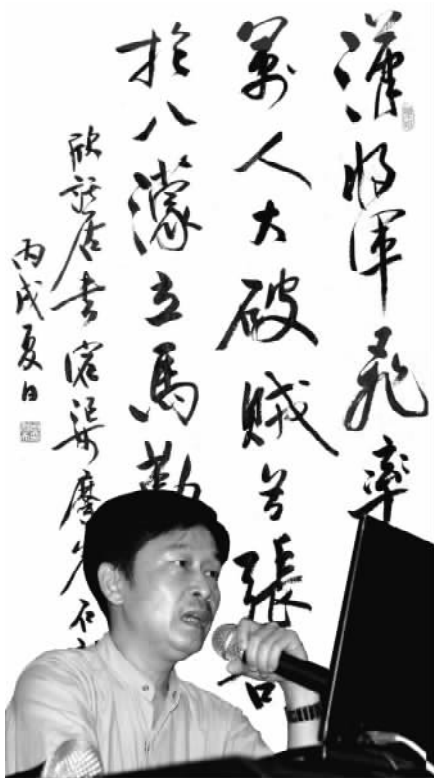 漢將軍飛率
萬人大破賊首張
於八濛立馬勒
欣託居書宕渠摩崖石
丙戌夏日